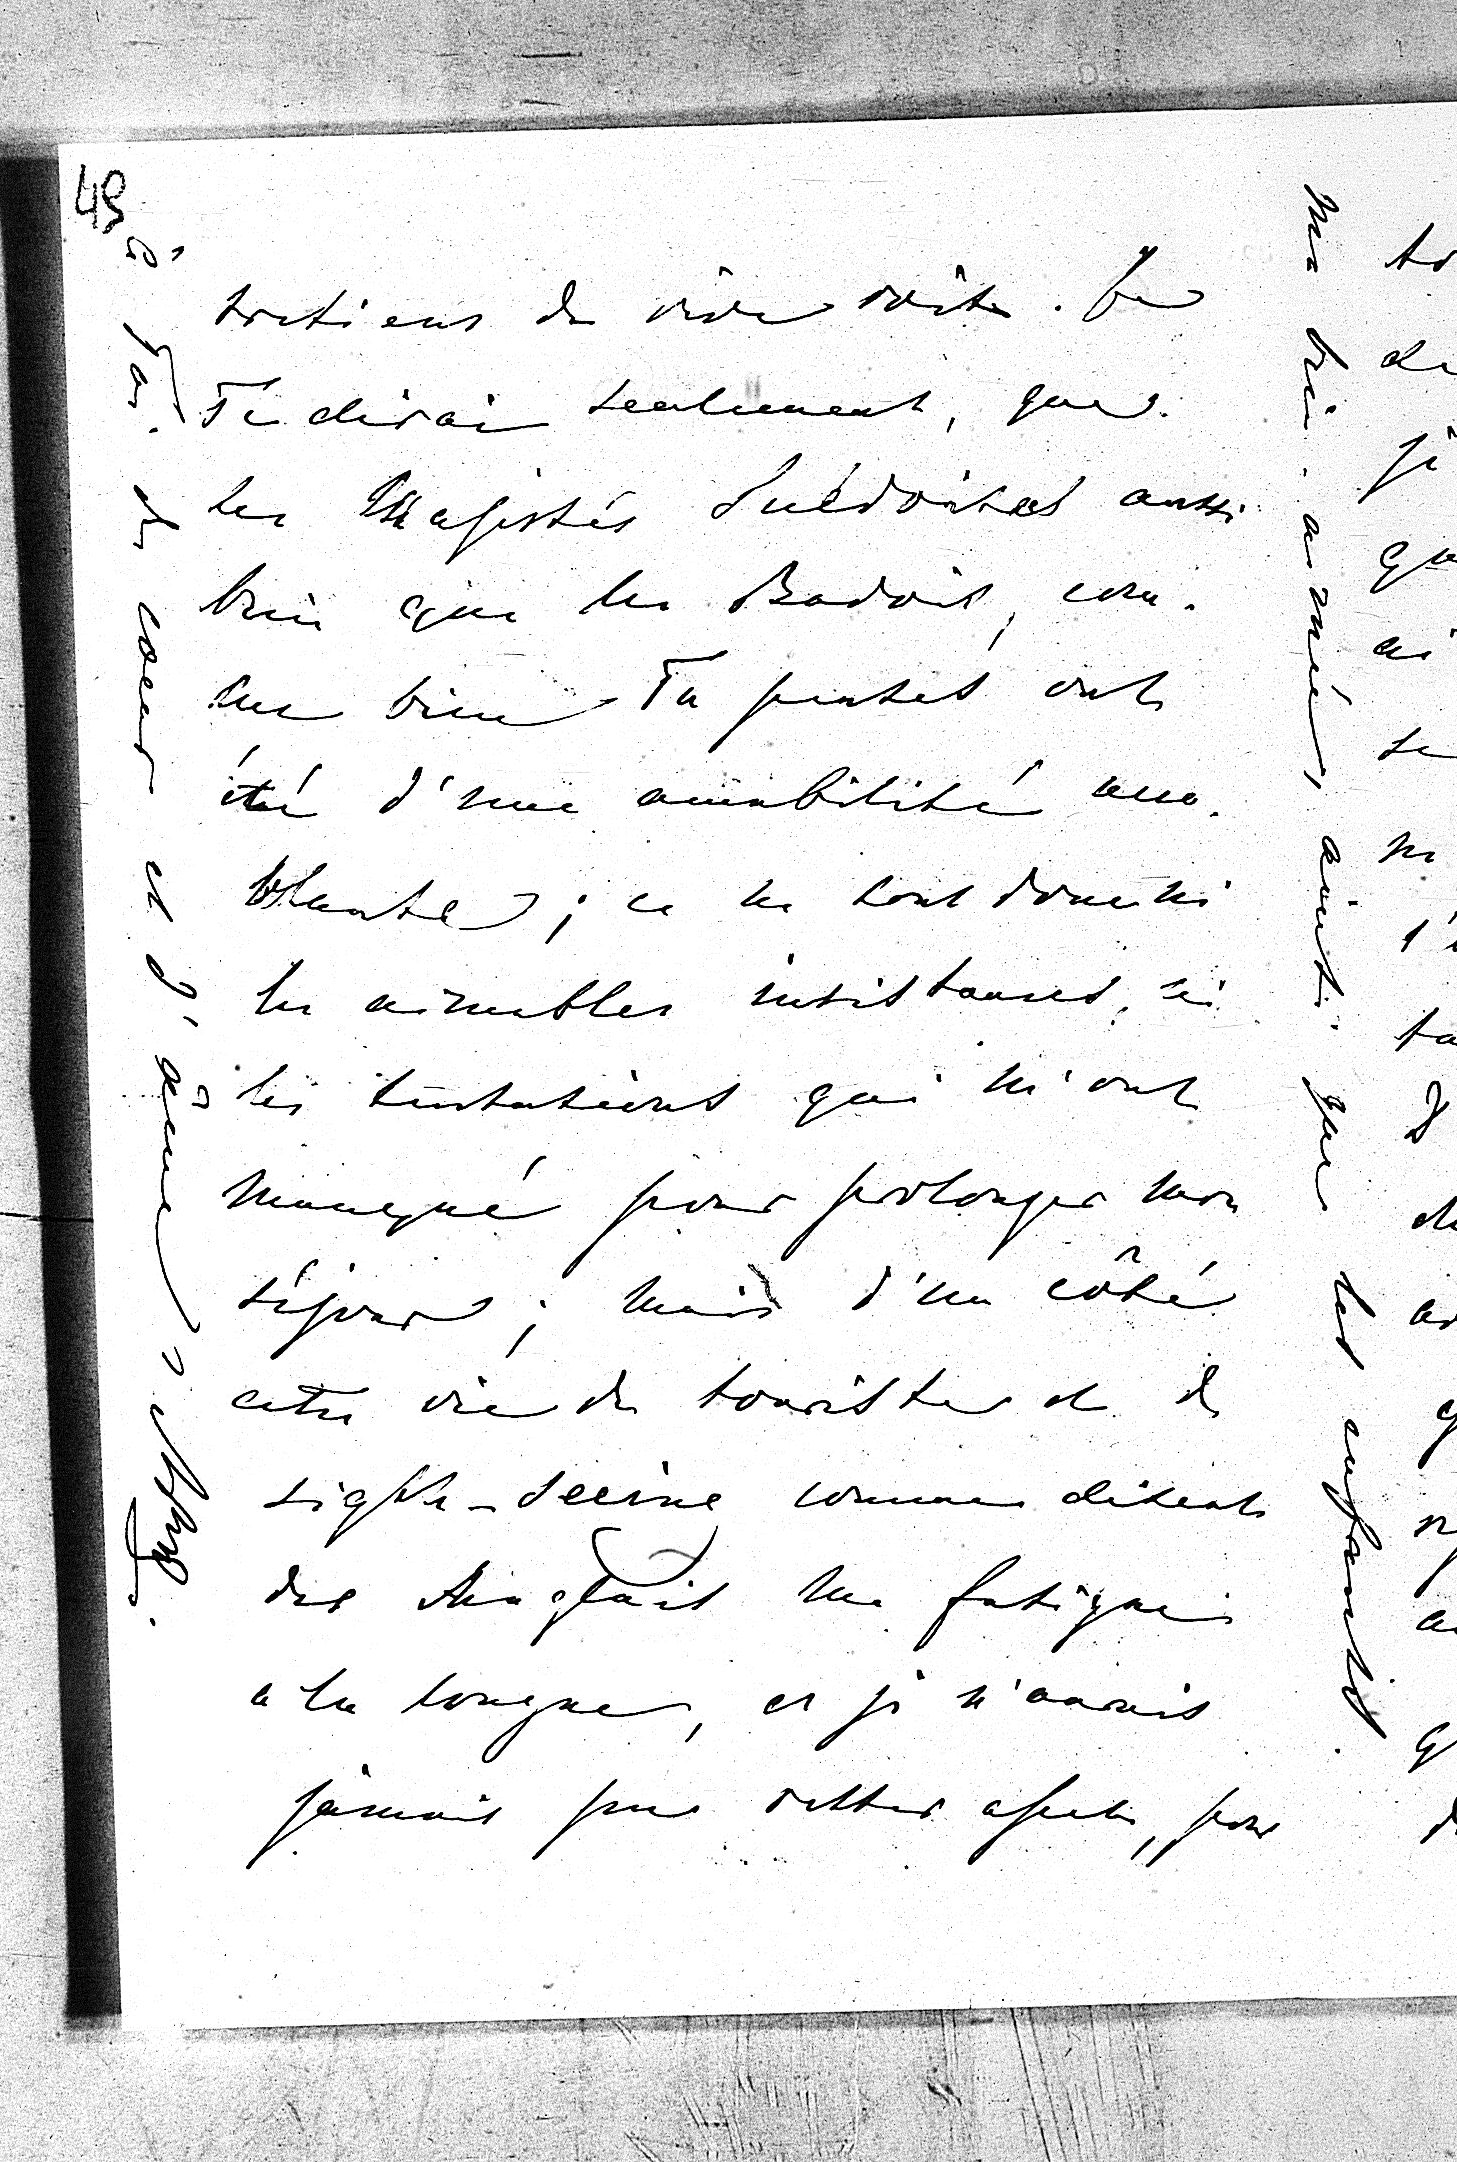 49
tretiens de vive voix. Je
Te dirai seulement, que
les Majestés Suédoises aussi
bien que les Badois, com-
me bien Tu penses ont
été d'une amabilité acca-
blante; ce ne sont donc ni
les aimables insistances, ni
les tentations qui m'ont
manqué pour prolonger mon
séjour; mais d'un côté
cette vie de touriste et de
sight-seeing comme disent
des Anglais me fatigue
a la longue, et je n'aurais
jamais pu rester absent, pour
à Toi de coeur et d'âme
ma bien-aimée, ainsi que les enfants.